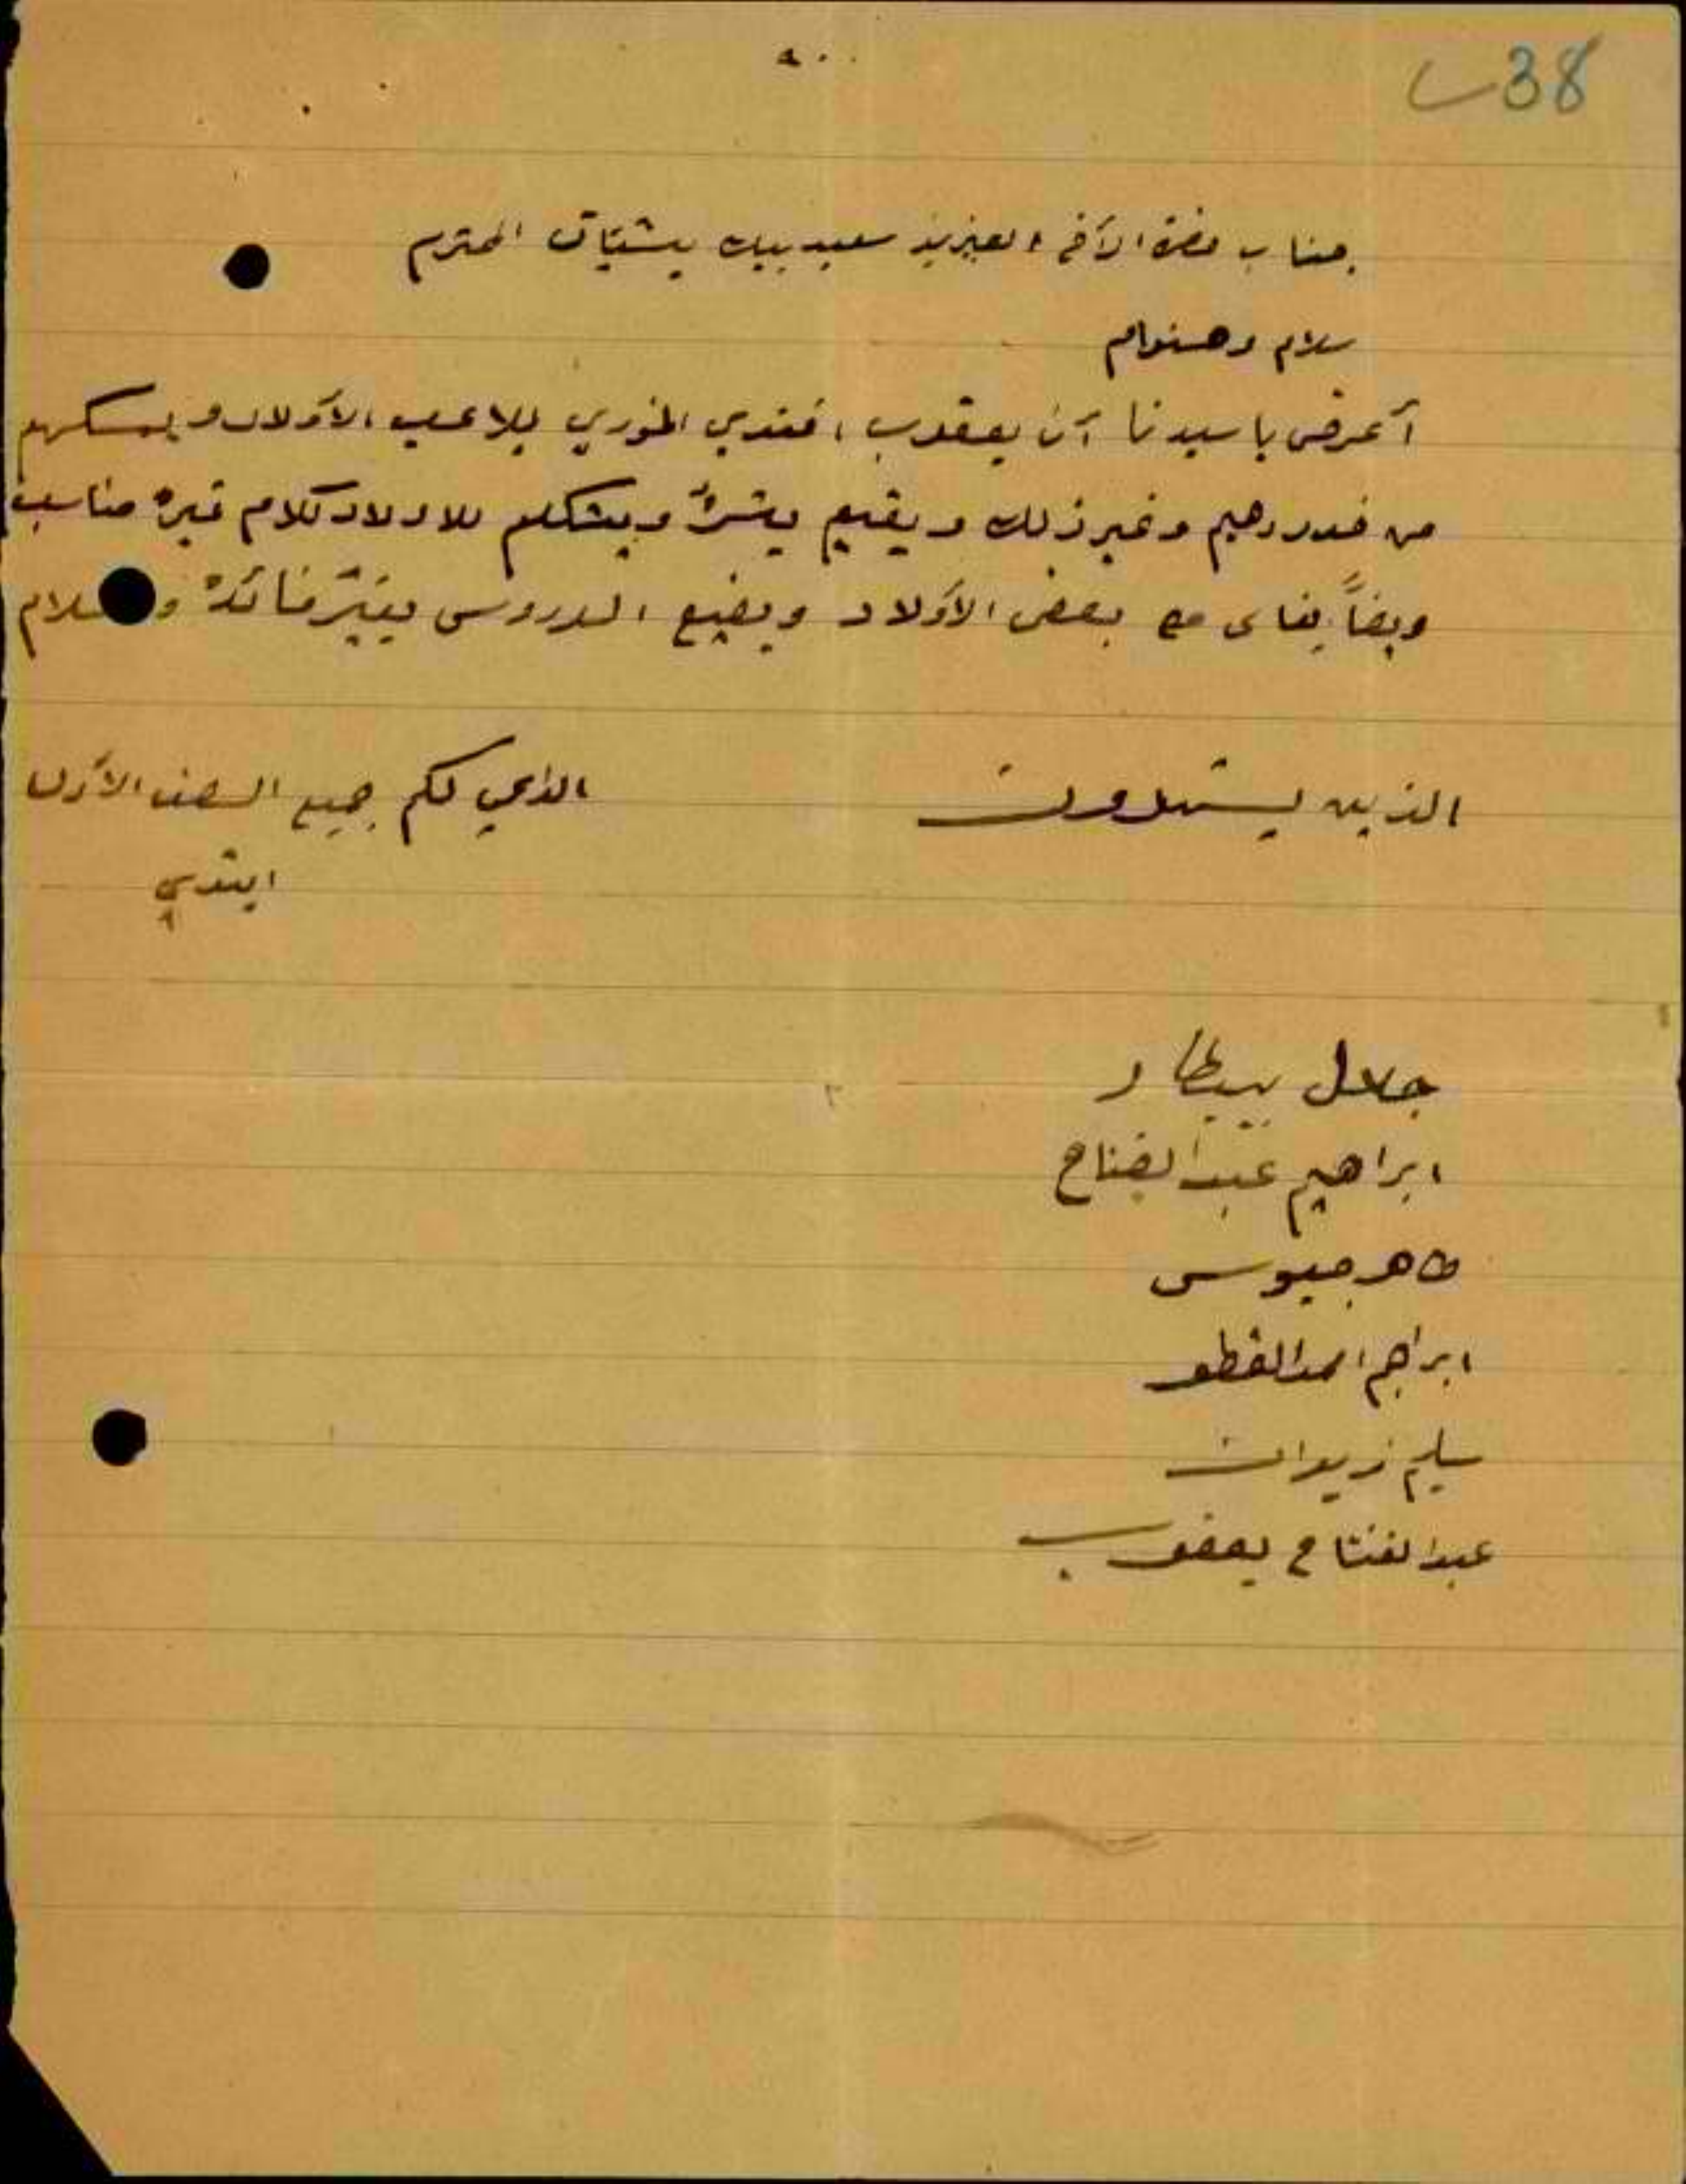 38
جناب حضرة الآخ العزيز سعيد بيك يشتيات المحترم
سلام وحتوام
آعرض يا سيدنا آن يعقوب افندي الخوري يلاعب الآولاد ويمسكهم
من خدودهيم وغير ذلك ويقيم ويتكلم للاولاد كلام غيره مناسب
ويضاً مع بعض الآولاد ويضيع الدروس بغير فائدة و سلام
الذين يشهدون
الداعي لكم جميع الصف الآول
ابتدي
جلال بيطار
ابراهيم عبد الفتاح
طاهر جيوسي
ابراهيم احمد القطو
سليم زيدان
عبد الفتاح يعقوب